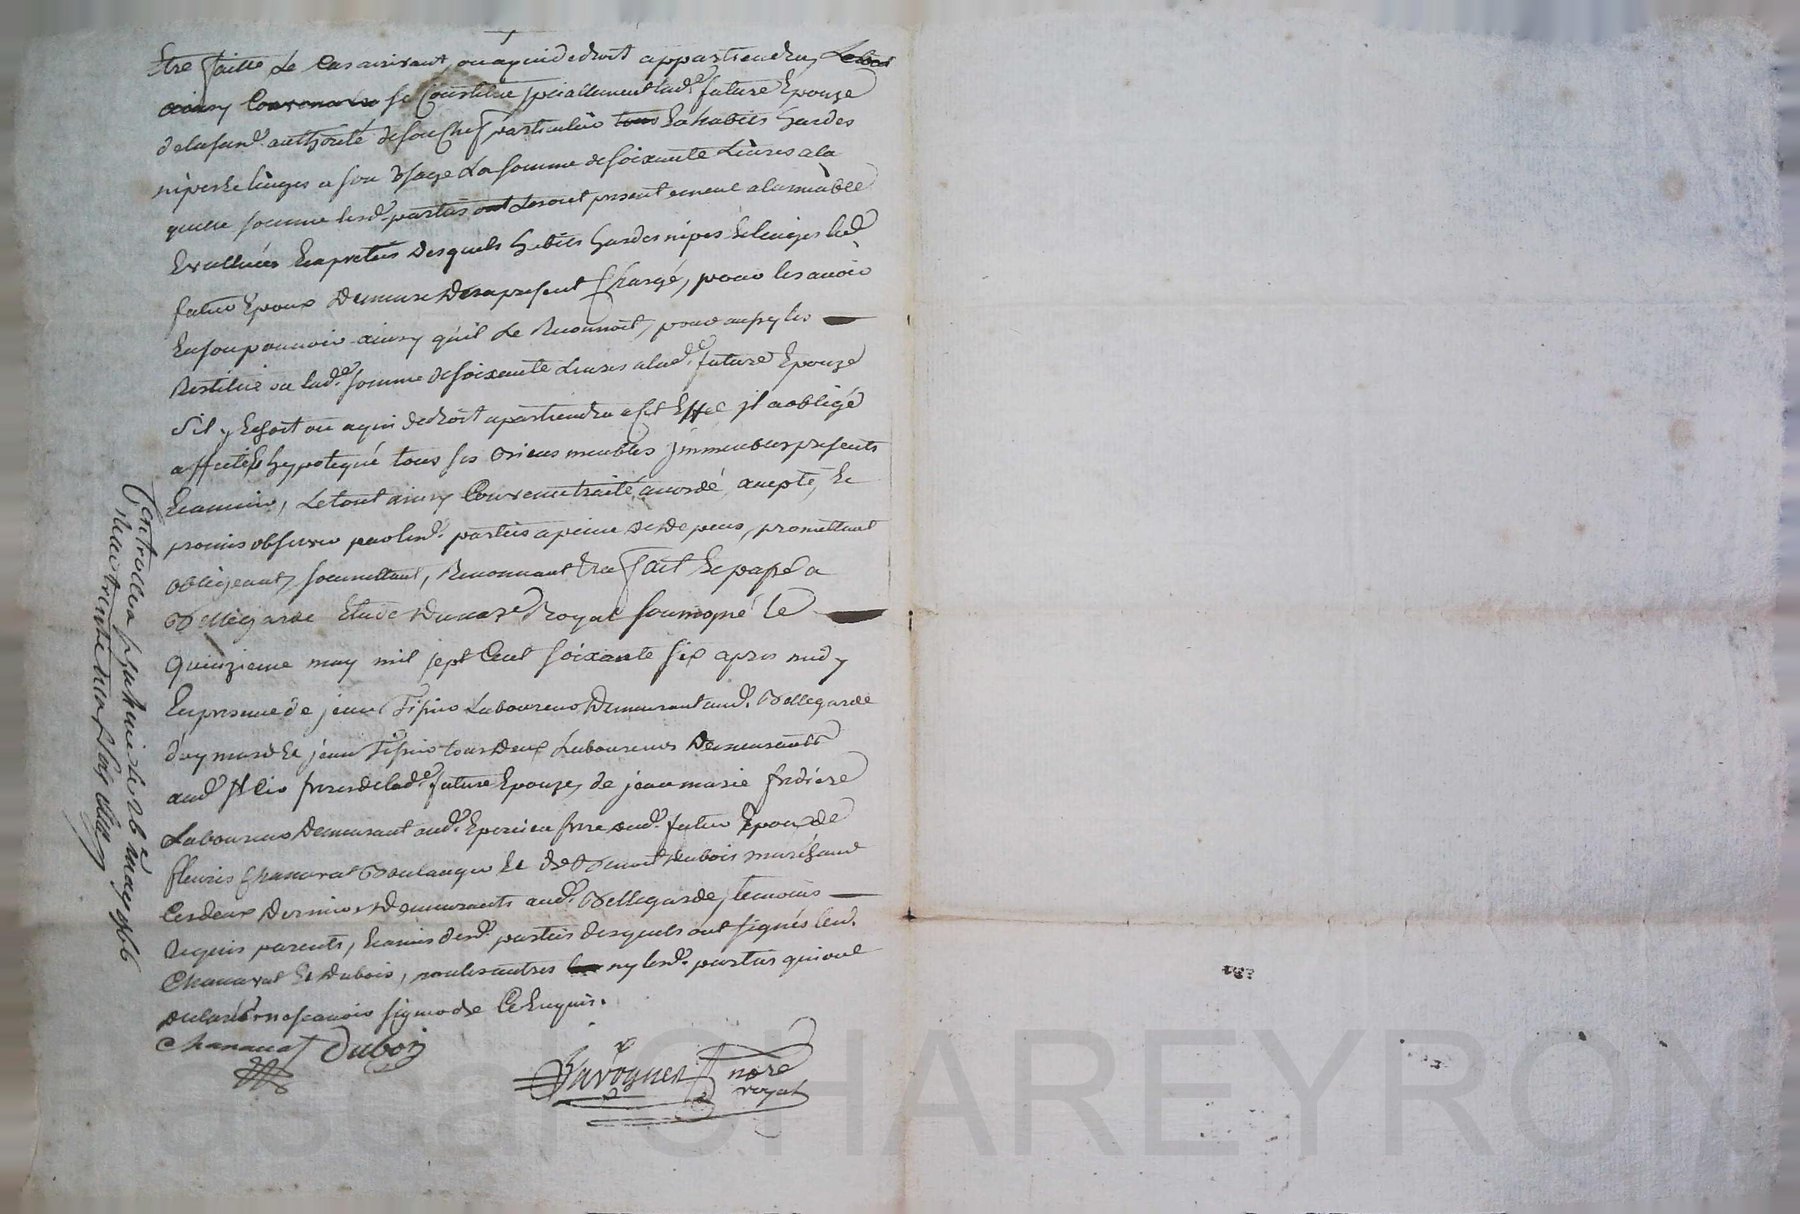 Etre faitte Le Cas arrivant, ou a qui de droit appartiendra,
ainsy se Constitue specialement lad.e future Epouze
de la susd.e authorité de son Chef particulier Ses habits hardes
nipes & linges a son Usage La somme de soixante Livres a la
quelle somme lesd. parties Les ont presentement a l'amiable
Evalluées Enapretiés Desquels habits hardes nipes & linges led.
futur Epoux Demeure Des a present Chargé, pour les avoir
En son pouvoir ainsy qu'il Le Reconnoit, pour
Restituer ou lad.e somme de soixante Livres a lad.e future Epouze
S'il y Echoit ou a qui de droit apartiendra a Cet Effet il a obligé
affecté & hypotequé tous ses Biens meubles immeubles presents
& avenir, Le tout ainsy Convenu traité accordé, accepté, &
promis observer par lesd. parties a peine de Depens, promettant
obligeant, soumettant, Renonçant & fait & passé a
Bellegarde Etude Du no.re Royal soussigné Le
quinzieme may mil sept Cent soixante six apres midy
En presence de jean Laboureur Demeurant aud. Bellegarde
& jean tous deux Laboureurs Demeurants
aud. freres de lad.e future Epouze, de jean marie fridiere
Laboureur Demeurant aud. frere dud. futur Epoux de
fleuris Chanavat Boulanger & de Benoit Dubois maréchand
Ces deux Derniers Demeurants aud. Bellegarde, temoins
Requis parents, & amis desd. parties Desquels ont signés lesd.
Chanavat & Dubois, non les autres ny lesd. parties qui ont
declaré ne scavoir signer de Ce Enquis.
Chanavat Dubois
nore
royal
Controllé a le 26 may 1766